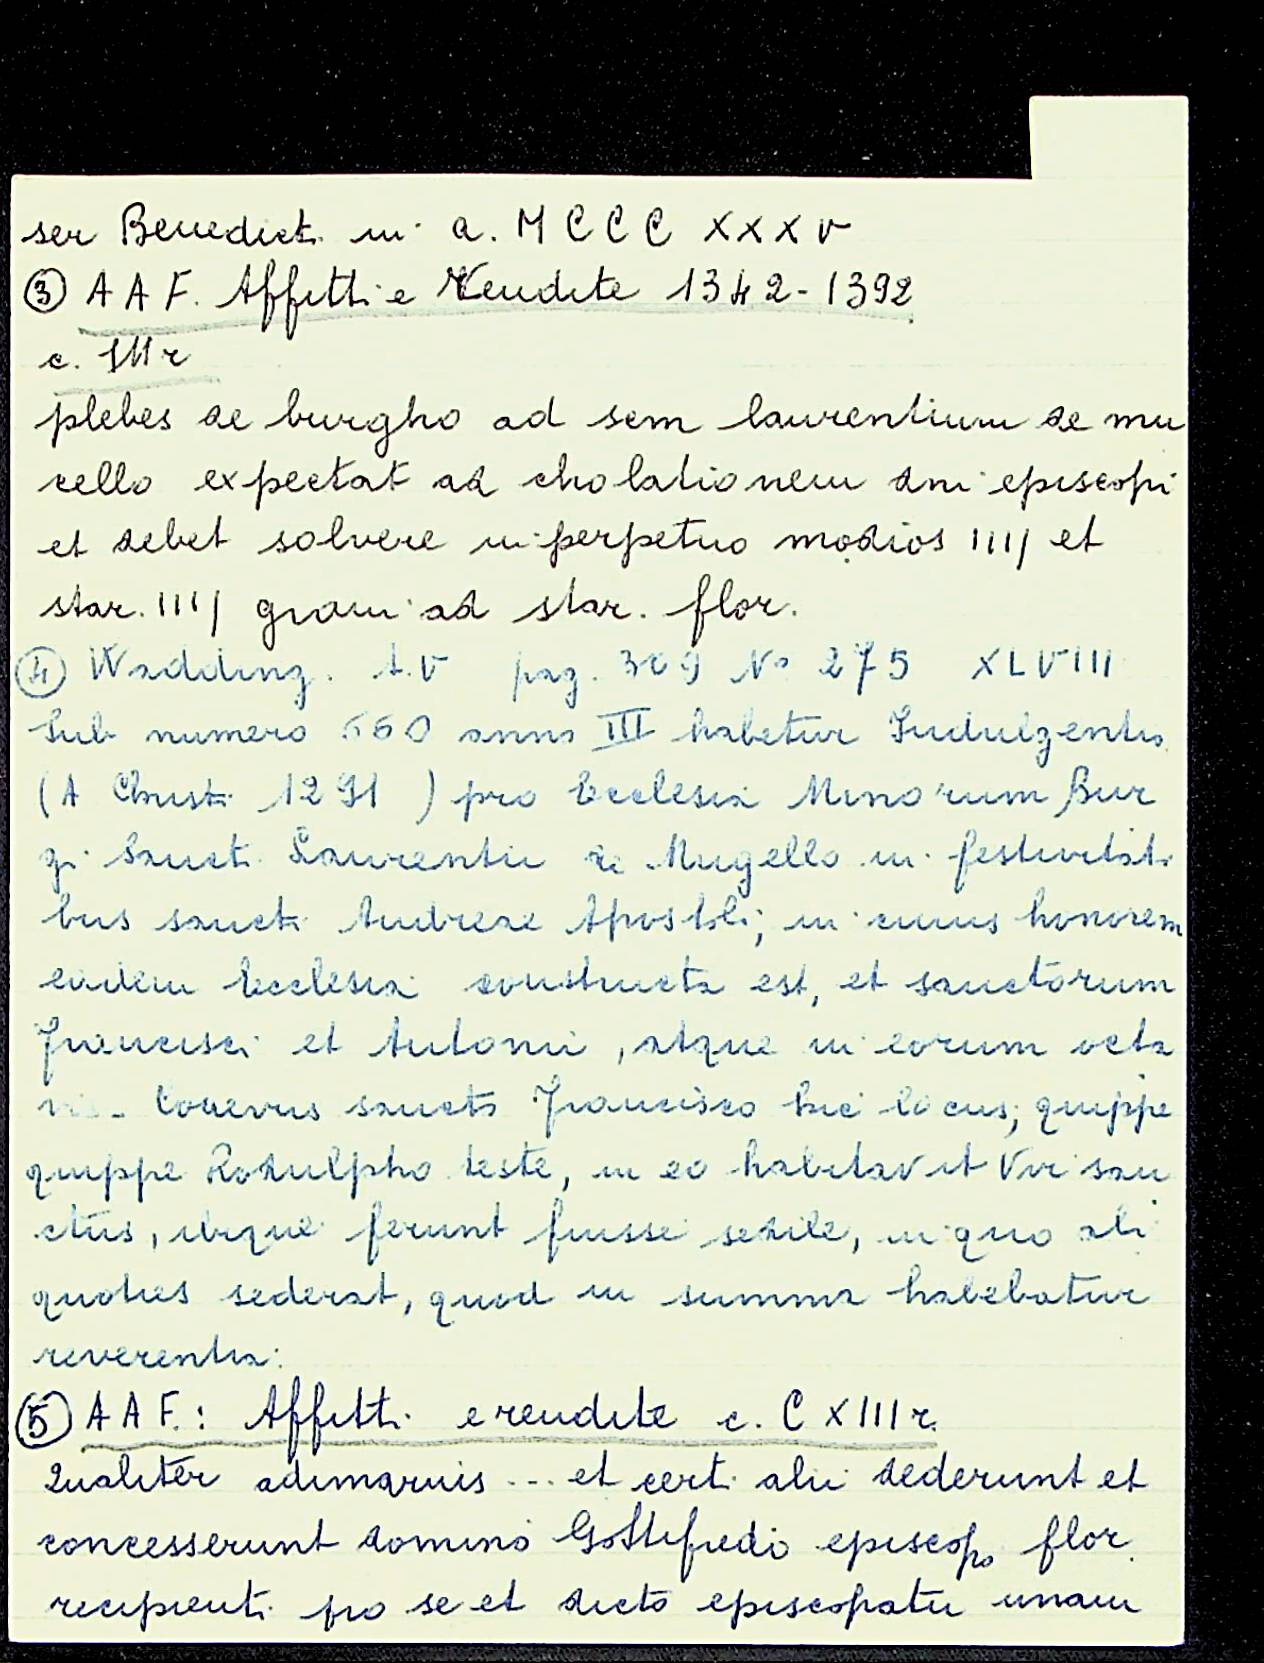 ser Benedicti in a. MCCCXXXV
③ AAF. Affitti e Vendite 1342-1392
c. IIII r
plebes de burgho ad sem laurentium de mu
cello expectat ad cholationem dni episcopi
et debet solvere in perpetuo modios IIII et
star. IIII grani ad star. flor.
④ Wadding. t. V pag. 309 No 275 XLVIII
Sub numero 660 anno III habetur Indulgentia
(A Christi 1291) pro Ecclesia Minorum Bur
gi Sancti Laurentii de Mugello in festivitati
bus sancti Andreae Apostoli; in cuius honorem
eadem Ecclesia constructa est, et sanctorum
Francisci et Antonii, atque in eorum octa
vis. Coaevus sancto Francisco hic locus; quippe
quippe Rodulpho teste, in eo habitavit Vir san
ctus, ibique ferunt fuisse sedile, in quo ali
quoties sederat, quod in summa habebatur
reverentia:
⑤ AAF.: Affitti e rendite c. CXIII r.
Qualiter adimaruis ... et certi alii dederunt et
concesserunt domino Gottifredo episcopo flor.
recipienti pro se et dicto episcopatu unam